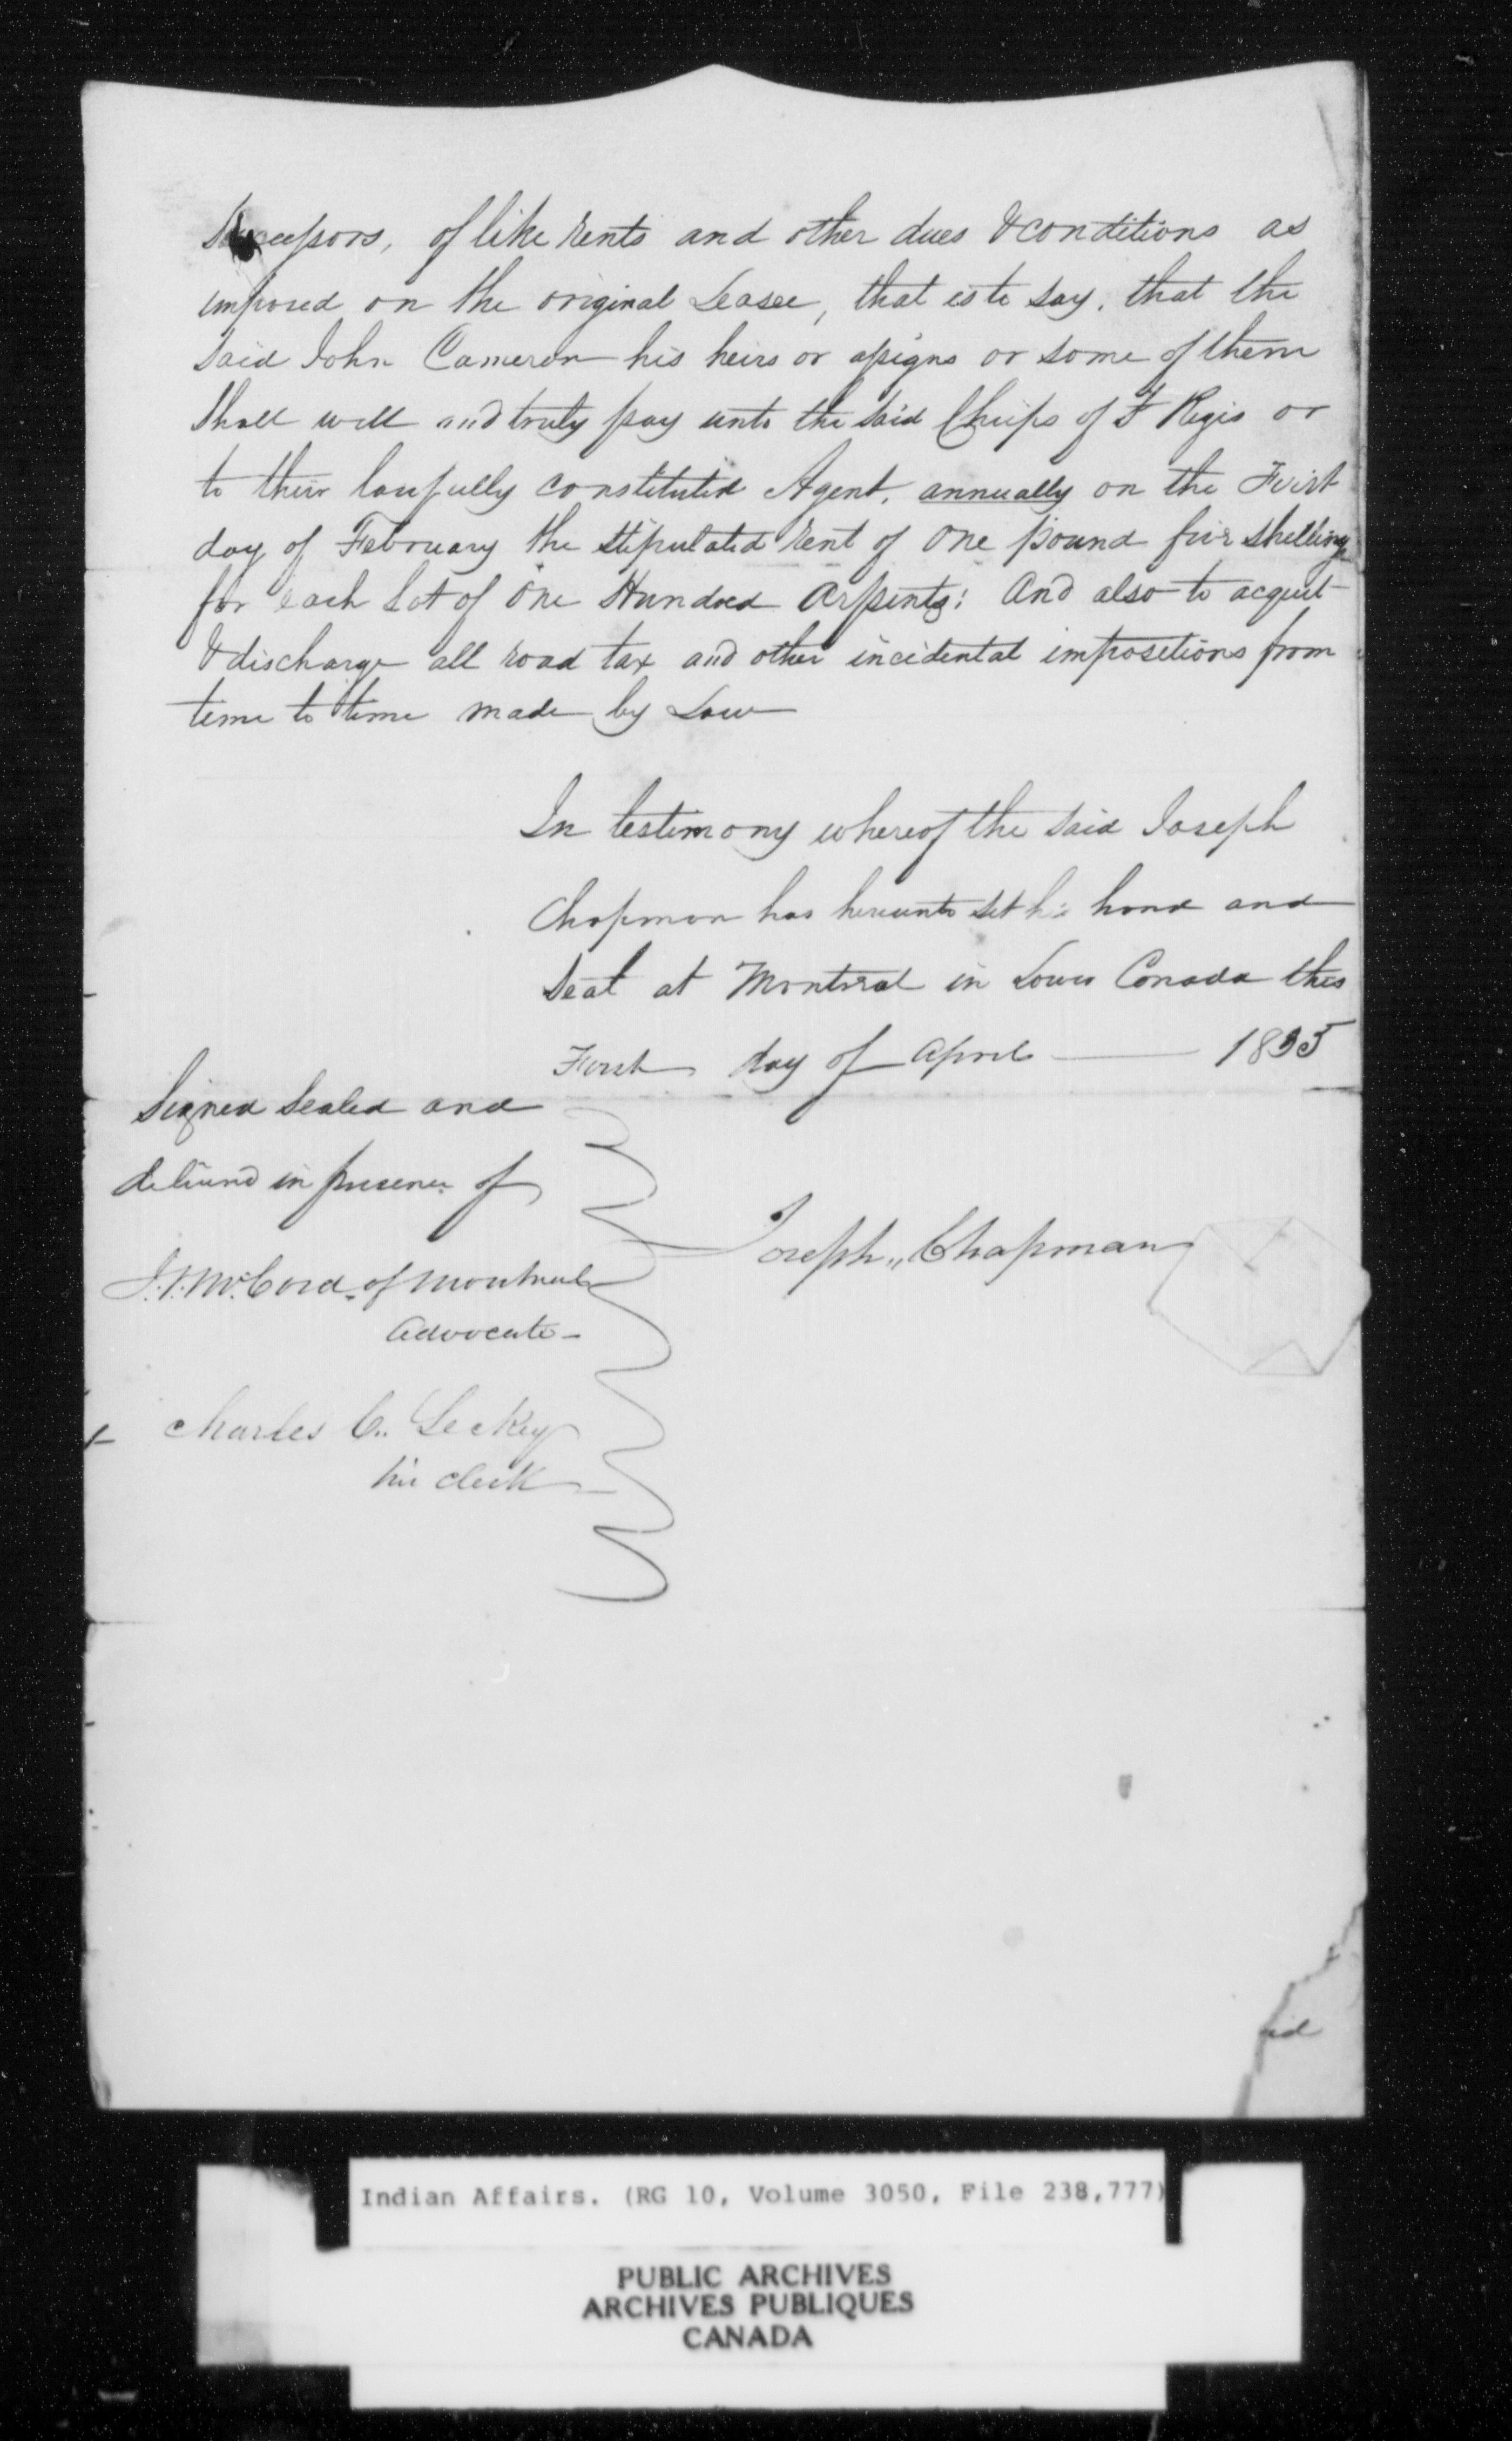 Successors, of like rents and other dues & conditions as
imposed on the original Leasee, that is to say, that the
said John Cameron his heirs or assigns or some of them
shall well and truly pay unto the said Chiefs of St Regis or
to their lawfully constituted Agent, annually on the First
day of February the stipulated rent of One pound five shillings
for each Lot of One Hundred Arpents; And also to acquit
& discharge all road tax and other incidental impositions from
time to time made by Law
In testimony whereof the said Joseph
Chapman has hereunto set his hand and
Seal at Montreal in Lower Canada this
First day of April 1835
Signed Sealed and
delivered in presence of
Joseph,, Chapman
McCord of Montreal
Advocate
Charles C. Leckey
his clerk
Indian Affairs. (RG 10, Volume 3050, File 238,777)
PUBLIC ARCHIVES
ARCHIVES PUBLIQUES
CANADA